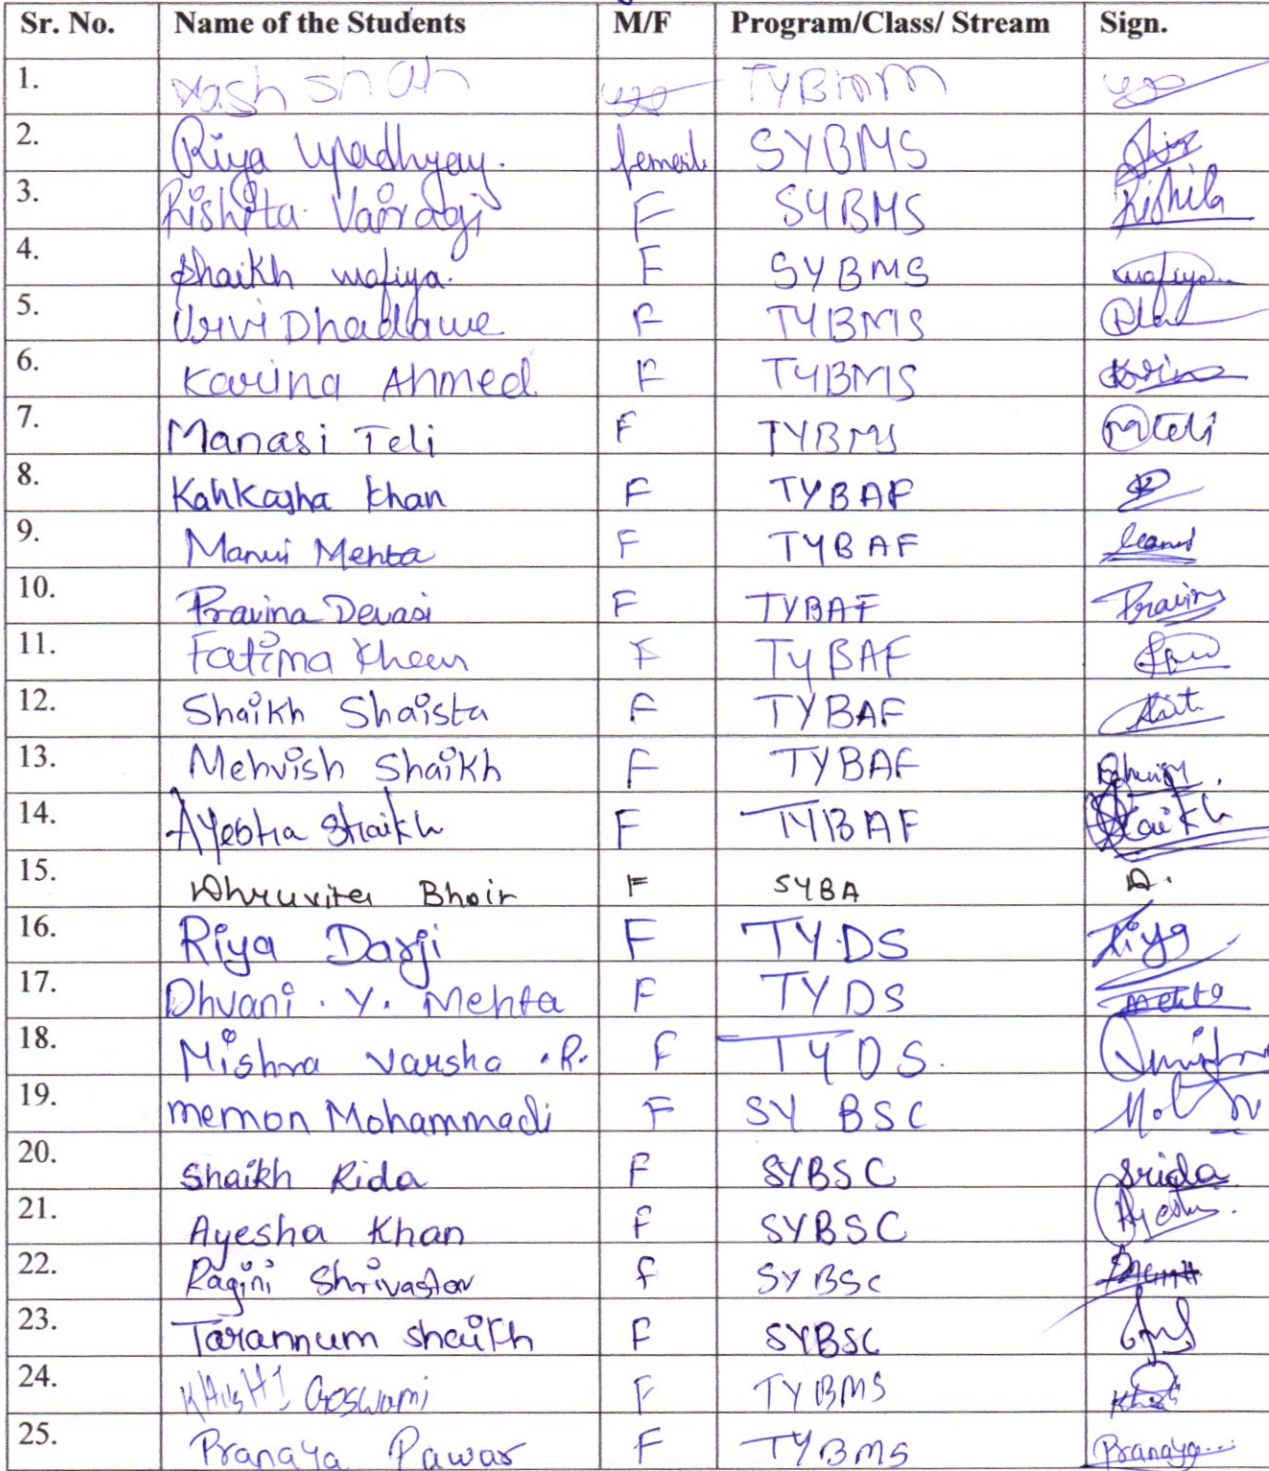 Sr. No. Name of the Students M/F Program/Class/ Stream Sign.
1. Yash Shah TYBMM
2. Riya Upadhyay. female SYBMS
3. Rishita Vairagi F SYBMS Rishita
4. Shaikh wafiya. F SYBMS wafiya
5. Urvi Dhadawe F TYBMS
6. Karina Ahmed F TYBMS Karina
7. Manasi Teli F TYBMS MTeli
8. Kahkasha Khan F TYBAF
9. Manvi Mehta F TYBAF
10. Pravina Devasi F TYBAF Pravina
11. Fatima Khan F TYBAF
12. Shaikh Shaista F TYBAF
13. Mehvish Shaikh F TYBAF
14. Ayesha Shaikh F TYBAF Shaikh
15. Dhruvita Bhoir F SYBA D.
16. Riya Darji F TY.DS Riya
17. Dhvani . Y. Mehta F TYDS Mehta
18. Mishra Varsha .R. F TYDS.
19. memon Mohammadi F SY BSC
20. Shaikh Rida F SYBSC Srida
21. Ayesha Khan F SYBSC Ayesha
22. Ragini Shrivastav f SYBSc
23. Tarannum shaikh F SYBSC
24. Goswami F TYBMS
25. Pranaya Pawar F TYBMS Pranaya